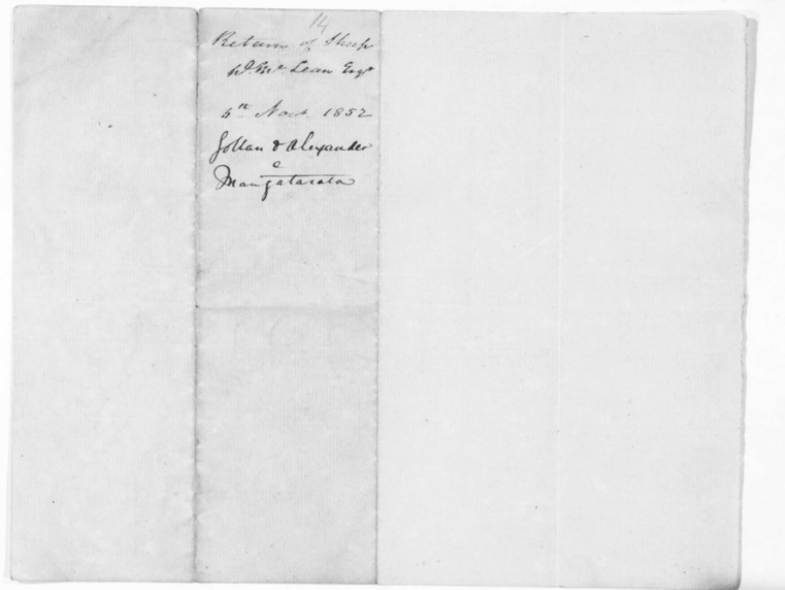 14
Return of Sheep
to D. McLean Esqr
4th Novr 1852
Gollan & Alexander
Mangatarata